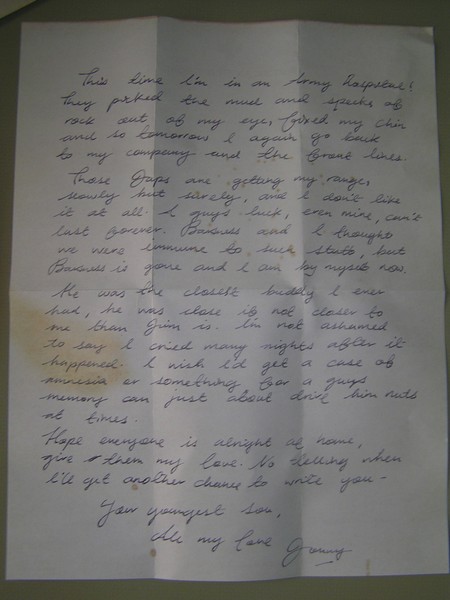 This time I'm in an Army Hospital!
They picked the mud and specks of
rock out of my eye, fixed my chin
and so tomorrow I again go back
to my company and the front lines.
Those Japs are getting my range,
slowly but surely, and I don't like
it at all. A guys luck, even mine, can't
last forever. Baines and I thought
we were immune to such stuff, but
is gone and I am by myself now.
He was the closest buddy I ever
had, he was close if not closer to
me than Jim is. I'm not ashamed
to say I cried many nights after it
happened. I wish I'd get a case of
amnesia or something for a guys
memory can just about drive him nuts
at times.
Hope everyone is alright at home,
give them my love. No telling when
I'll get another chance to write you -
Your youngest son,
All my love